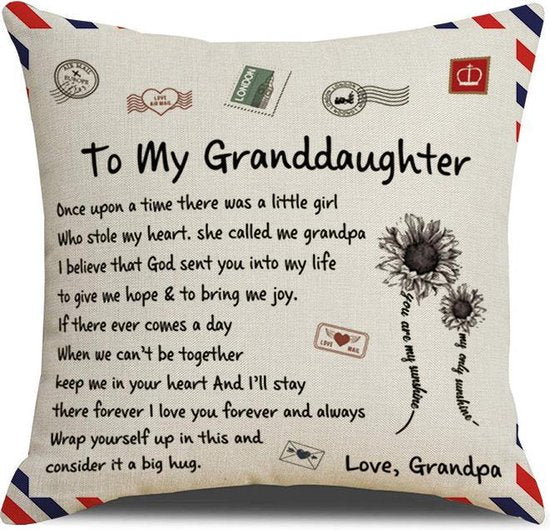 AIR MAIL
EUROPE
LOVE
AIR MAIL
LONDON
LONDON
To My Granddaughter
Once upon a time there was a little girl
Who stole my heart. she called me grandpa
I believe that God sent you into my life
to give me hope & to bring me joy.
If there ever comes a day
When we can't be together
keep me in your heart And I'll stay
there forever I love you forever and always
Wrap yourself up in this and
consider it a big hug.
you are my sunshine
my only sunshine
LOVE MAIL
Love, Grandpa